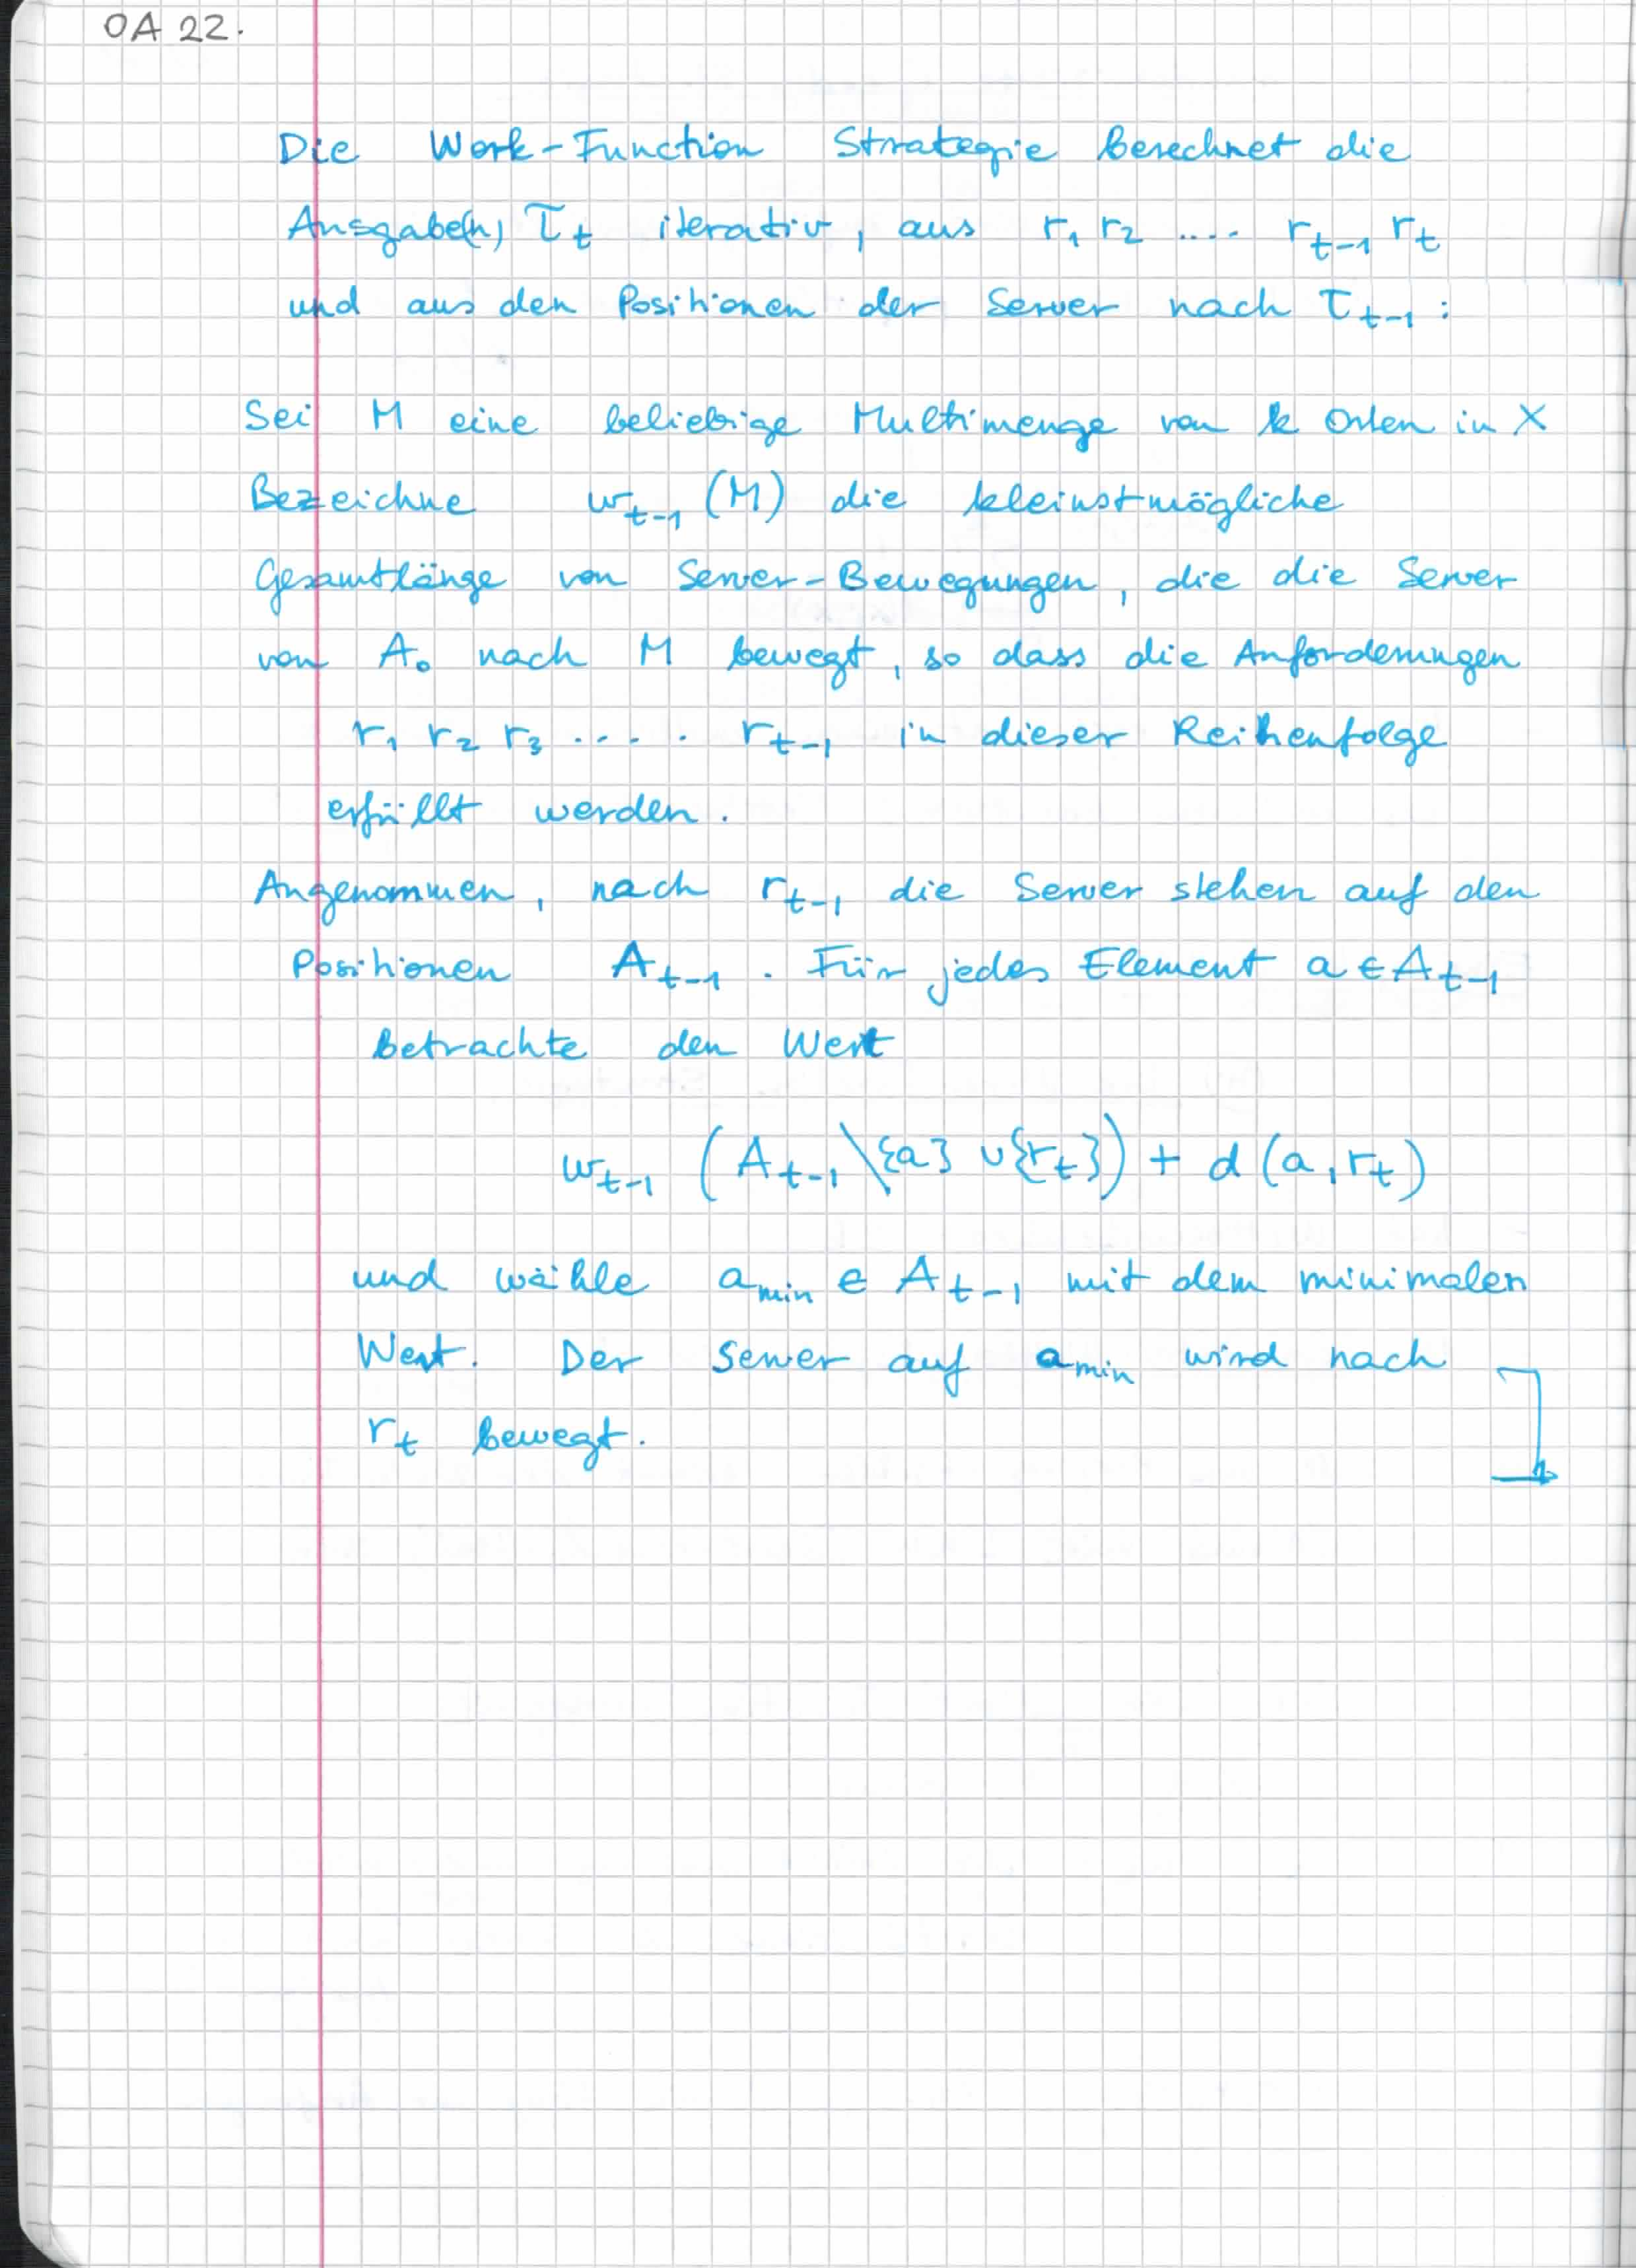 OA 22.
Die Work-Function Strategie berechnet die
Ausgabe(n) τ_t iterativ, aus r_1 r_2 .... r_{t-1} r_t
und aus den Positionen der Server nach τ_{t-1} :
Sei M eine beliebige Multimenge von k Orten in X
Bezeichne w_{t-1} (M) die kleinstmögliche
Gesamtlänge von Server-Bewegungen, die die Server
von A_0 nach M bewegt, so dass die Anforderungen
r_1 r_2 r_3 ..... r_{t-1} in dieser Reihenfolge
erfüllt werden.
Angenommen, nach r_{t-1} die Server stehen auf den
Positionen A_{t-1}. Für jedes Element a ∈ A_{t-1}
betrachte den Wert
w_{t-1} (A_{t-1} \ {a} ∪ {r_t}) + d (a, r_t)
und wähle a_min ∈ A_{t-1} mit dem minimalen
Wert. Der Server auf a_min wird nach
r_t bewegt.